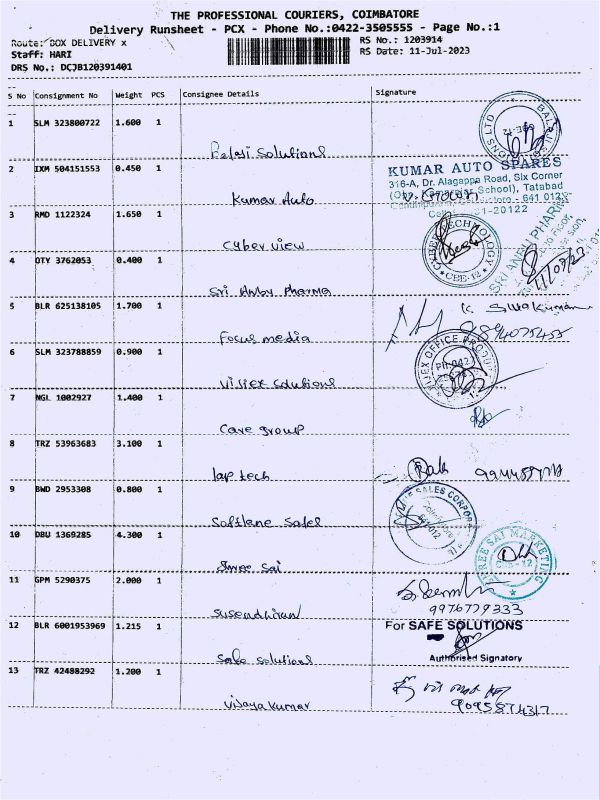 THE PROFESSIONAL COURIERS, COIMBATORE
Delivery Runsheet - PCX - Phone No.:0422-3505555 - Page No.:1
Route: BOX DELIVERY x
RS No.: 1203914
Staff: HARI
RS Date: 11-Jul-2023
DRS No.: DCJB120391401
S No Consignment No Weight PCS Consignee Details Signature
1 SLM 323800722 1.600 1
Solutions
2 IXM 504151553 0.450 1
KUMAR AUTO SPARES
316-A, Dr. Alagappa Road, Six Corner
School), Tatabad
641 012
Kumar Auto
3 RMD 1122324 1.650 1
Cyber view
4 OTY 3762053 0.400 1
CYBER TECHNOLOGY
CBE-12
11/07/23
Sri Anbu Pharma
5 BLR 625138105 1.700 1
K. Sivakumar
Focus media
6 SLM 323788859 0.900 1
Solutions
7 NGL 1002927 1.400 1
Care group
8 TRZ 53963683 3.100 1
lap tech
9 BWD 2953308 0.800 1
SALES CORPORA
641 012
Softlane Sales
10 DBU 1369285 4.300 1
SHREE SAI MARKETING
CBE - 12
Shree Sai
11 GPM 5290375 2.000 1
9976779333
Susendhiran
12 BLR 6001953969 1.215 1
For SAFE SOLUTIONS
Authorised Signatory
Safe Solutions
13 TRZ 42488292 1.200 1
9095874317
Vijayakumar